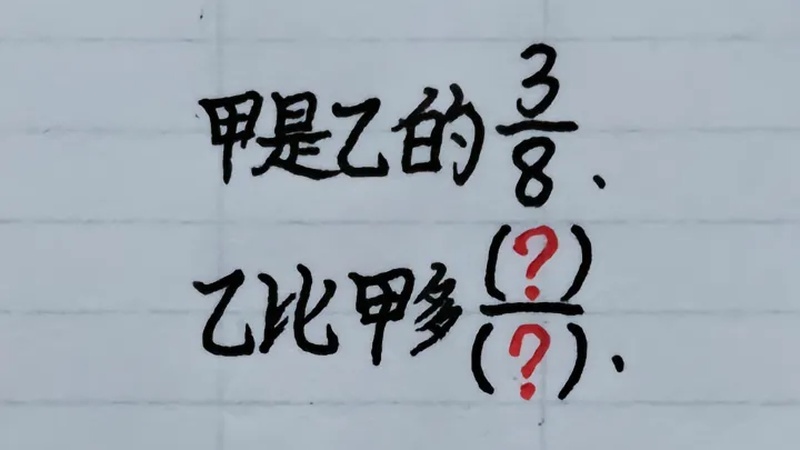 甲是乙的3/8、
乙比甲多(?)/(?)、